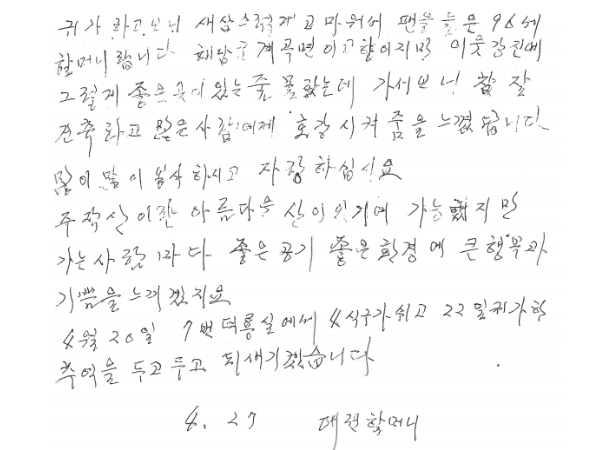 귀가 하고보니 새삼스럽게 고마워서 팬을 들은 96세
할머니랍니다 해남군 계곡면이 고향이지만 이웃 강진에
그렇게 좋은곳이 있는줄 몰랐는데 가서보니 참 잘
건축 하고 많은 사람에게 호강 시켜 줌을 느꼈답니다
많이 많이 봉식하시고 자랑하십시요
주작산이란 아름다운 산이 있기에 가능했지만
가는사람마다 좋은공기 좋은환경에 큰행복과
기쁨을 느끼겠지요
4월 20일 7번 덕룡실에서 4식구가 쉬고 22일 귀가하
추억을 두고두고 되새기겠습니다
4. 27 대전할머니